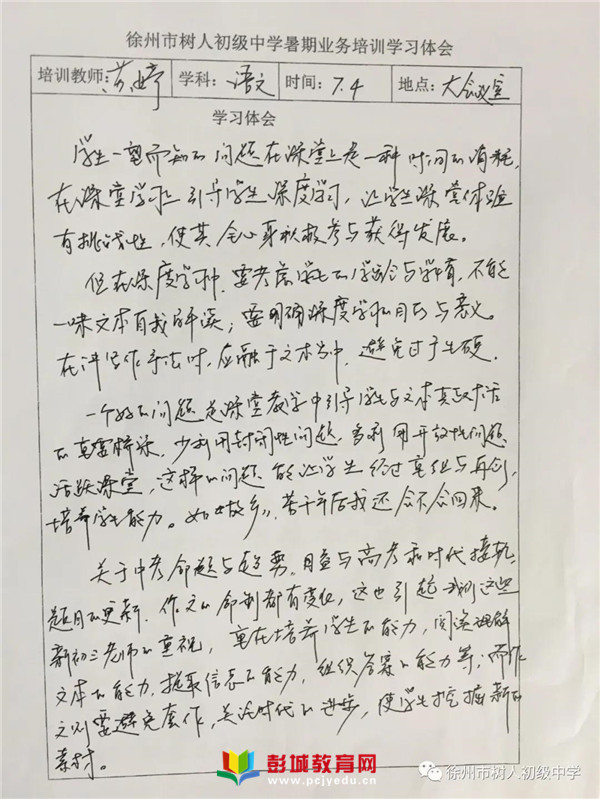 徐州市树人初级中学暑期业务培训学习体会
培训教师: 苏婷 学科: 语文 时间: 7.4 地点: 大会议室
学习体会
学生一望而知的问题在课堂上是一种时间的消耗,
在课堂学习上引导学生深度学习,让学生课堂体验
有挑战性,使其全心身积极参与获得发展。
但在深度学习中,要考虑学生的学龄与学情,不能
一味文本自我解读;要明确深度学习的目的与意义。
在讲写作手法时,应融于文本当中,避免过于生硬.
一个好的问题是课堂教学中引导学生与文本真正对话
的 ,少利用封闭性问题,多利用开放性问题
活跃课堂,这样的问题能让学生经过重组与再创,
培养学生能力。如《故乡》,若干年后我还会不会回来。
关于中考命题与趋势,目益与高考和时代接轨,
题目的更新.作文的命制都有变化,这也引起我们这些
新初三老师的重视,重在培养学生的能力,阅读理解
文本的能力,提取信息的能力,组织答案的能力等;而作
文则要避免套作,关注时代的进步,使学生挖掘新的
素材。
彭城教育网
www.pcjyedu.cn
徐州市树人初级中学